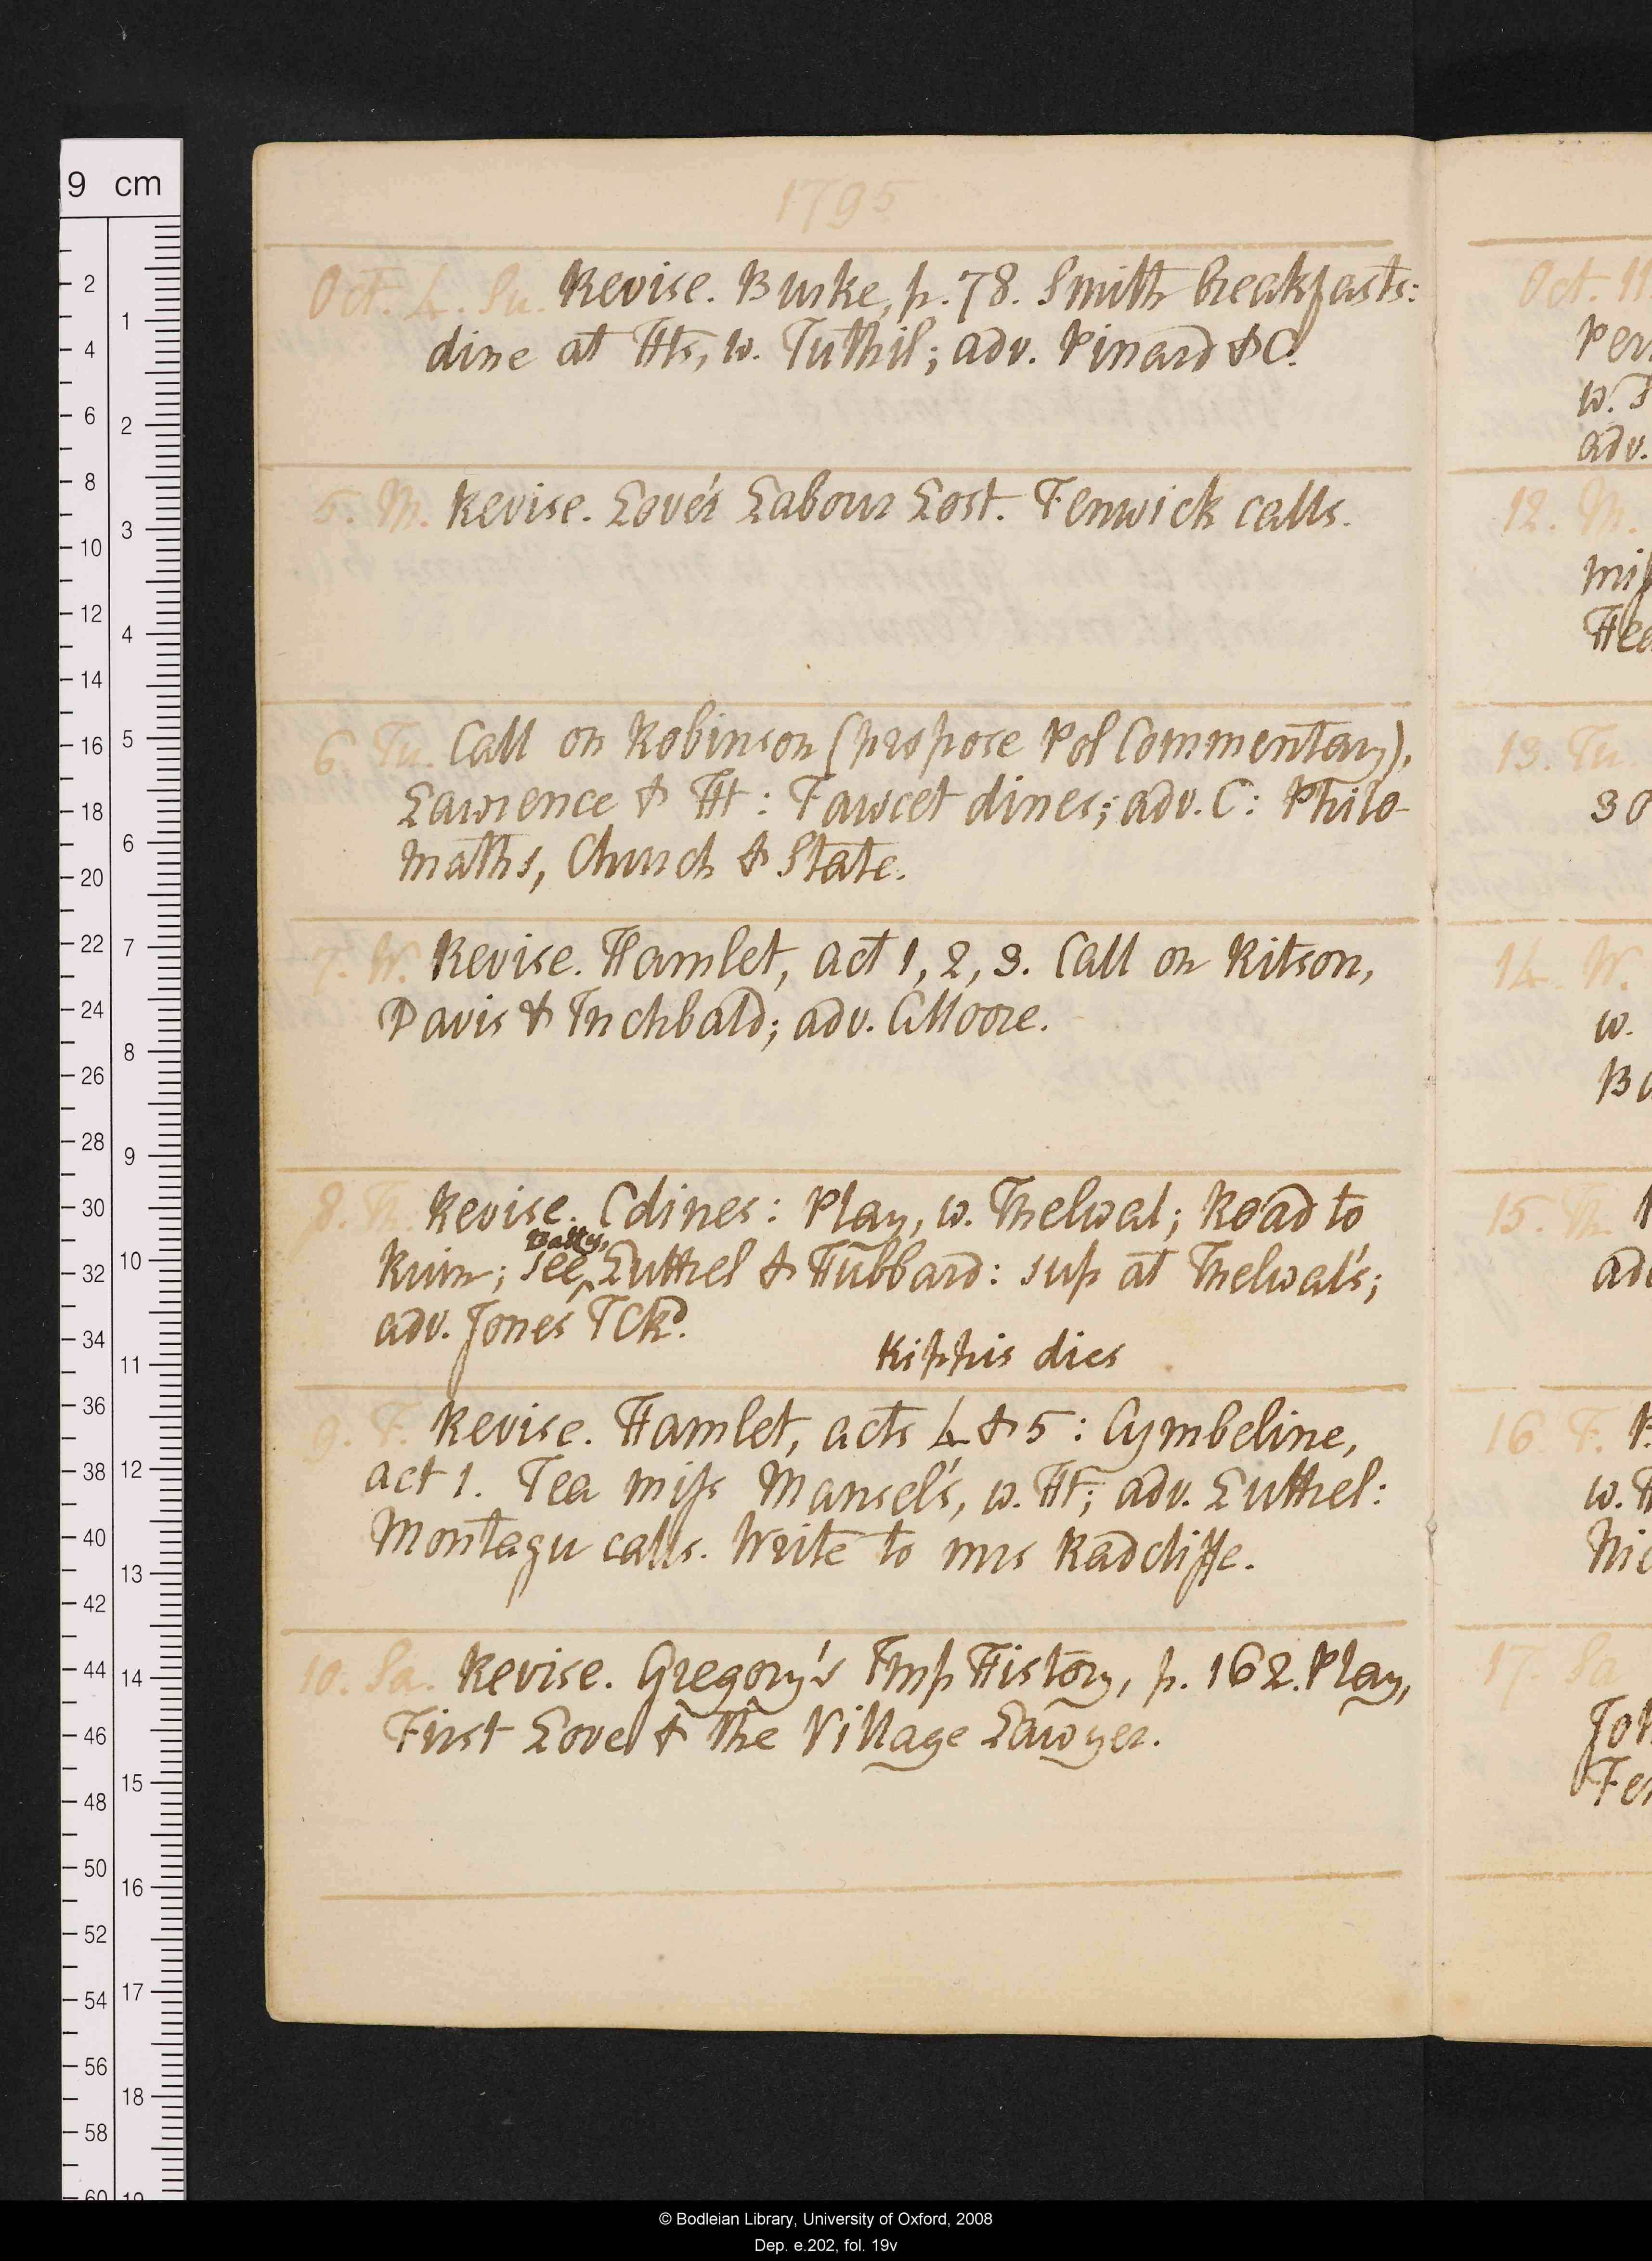 1795
Oct. 4. Su. Revise. Burke, p. 78. Smith breakfasts:
dine at Hts, w. Tuthil; adv. Pinard & C.
5. M. Revise. Love's Labour Lost. Fenwick calls.
6. Tu. Call on Robinson (propose Pol Commentary),
Lawrence & Ht: Fawcet dines; adv. C: Philo-
maths, Church & State.
7. W. Revise. Hamlet, act 1, 2, 3. Call on Ritson,
Davis & Inchbald; adv. GMoore.
8. Th. Revise. C dines: Play, w. Thelwal; Road to
Ruin; see Batty, Luttrel & Hubbard: sup at Thelwal's;
adv. Jones TCkd.
Kippis dies
9. F. Revise. Hamlet, acts 4 & 5: Cymbeline,
act 1. Tea miss Mansel's, w. Ht; adv. Luttrel:
Montagu calls. Write to mrs Radcliffe.
10. Sa. Revise. Gregory's Imp History, p. 162. Play,
First Love & the Village Lawyer.
Oct. 11
w.
adv.
12. M.
13. Tu.
14. W.
w.
15. Th.
16 F.
17. Sa
9 cm
2 4 6 8 10 12 14 16 18 20 22 24 26 28 30 32 34 36 38 40 42 44 46 48 50 52 54 56 58 60
1 2 3 4 5 6 7 8 9 10 11 12 13 14 15 16 17 18 19
© Bodleian Library, University of Oxford, 2008
Dep. e.202, fol. 19v